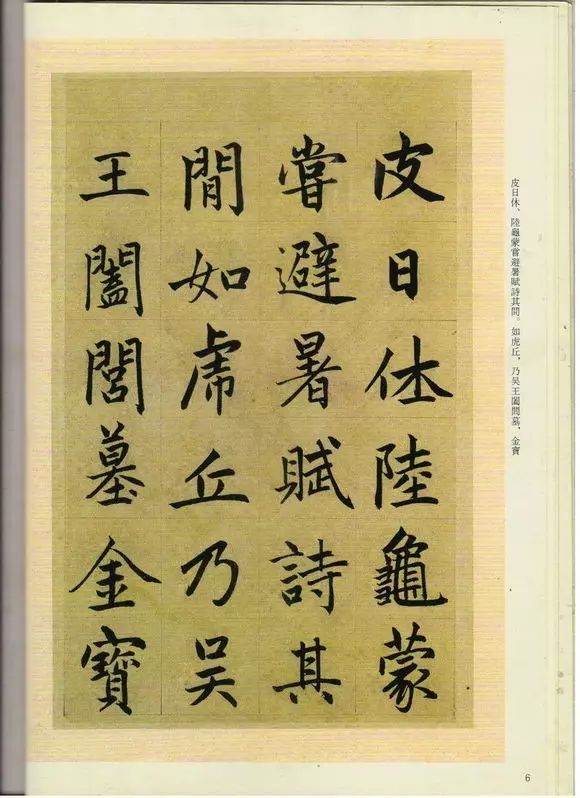 皮日休陸龜蒙
嘗避暑賦詩其
閒如虎丘乃吳
王闔閭墓金寶
皮日休、陸龜蒙嘗避暑賦詩其間。如虎丘，乃吳王闔閭墓，金寶
6